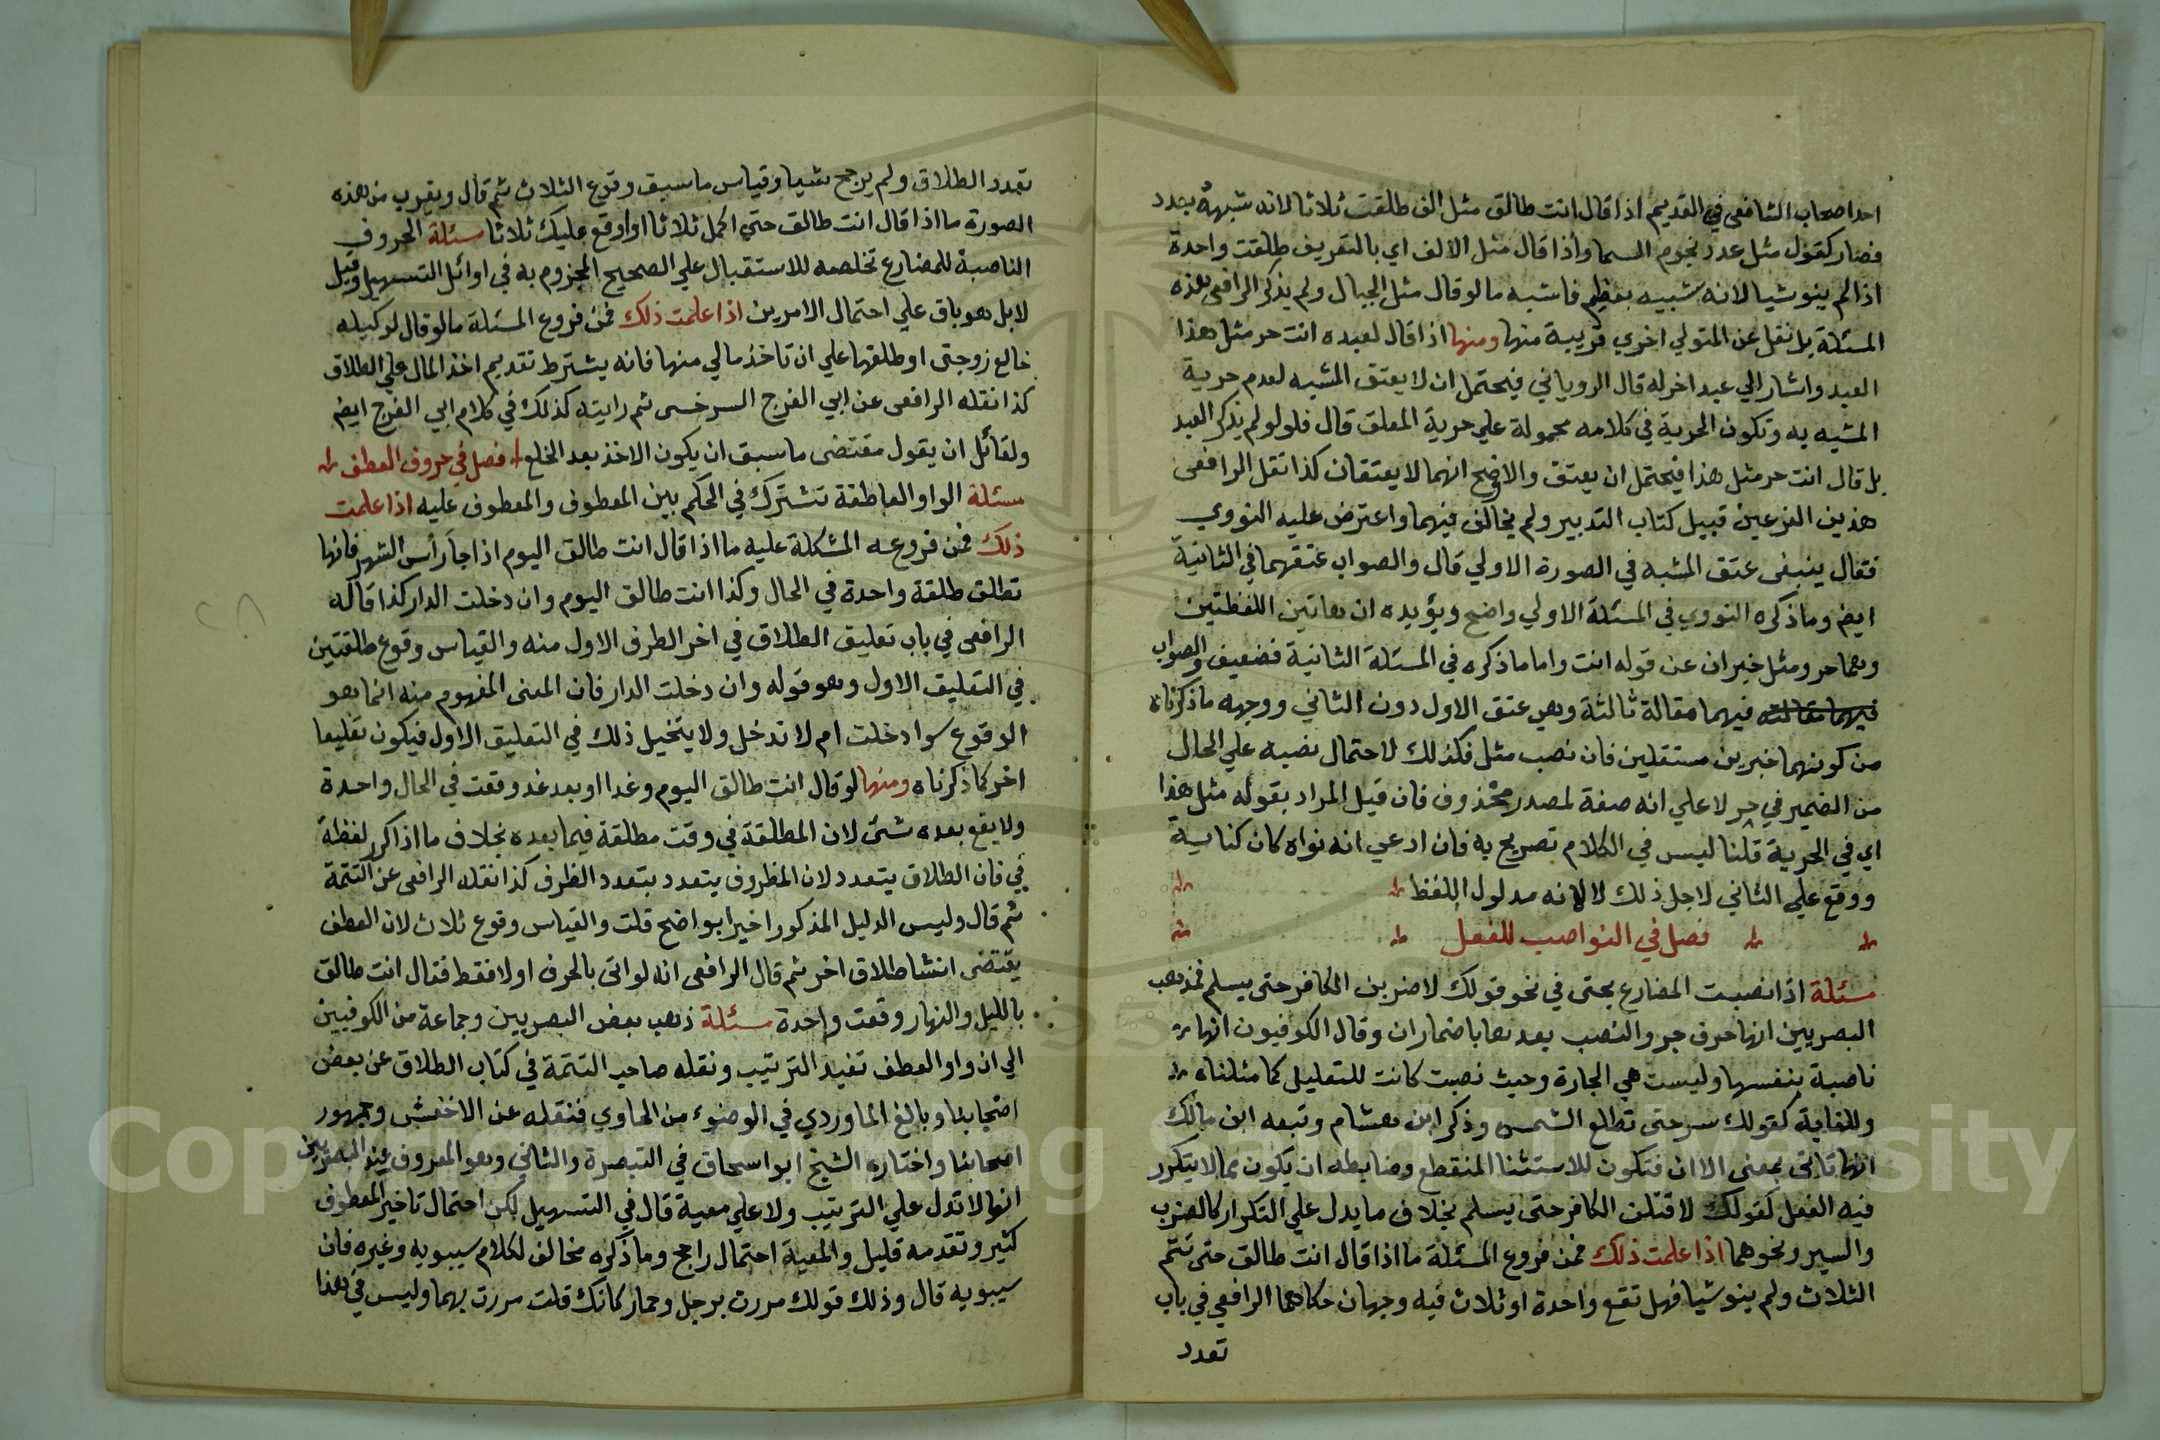 احد اصحاب الشافعي في القديم اذا قال انت طالق مثل الف طلقت ثلاثا لانه شبهه بعدد
فصار كقول مثل عدد نجوم السما واذا قال مثل الالف اي بالتعريف طلقت واحدة
اذا لم ينو شيا لانه شبيه بعظيم فاشبه ما لو قال مثل الجبال ولم يذكر الرافعي هذه
المسئلة بل نقل عن المتولي اخري قريبة منها ومنها اذا قال لعبده انت حر مثل هذا
العبد واشار الي عبد اخر له قال الروياني فيحتمل ان لا يعتق المشبه لعدم حرية
المشبه به وتكون الحرية في كلامه محمولة علي حرية المعلق قال فلو لم يذكر العبد
بل قال انت حر مثل هذا فيحتمل ان يعتق والاضح انهما لا يعتقان كذا نقل الرافعي
هذين الفرعين قبيل كتاب التدبير ولم يخالف فيهما واعترض عليه النووي
فقال ينبغي عتق المشبه في الصورة الاولي قال والصواب عتقهما في الثانية
ايض وما ذكره النووي في المسئلة الاولي واضح ويؤيده ان هاتين اللفظتين
وهما حر ومثل خبران عن قوله انت واما ما ذكره في المسئلة الثانية فضعيف والصواب
فيهما مقالته فيهما مقالة ثالثة وهي عتق الاول دون الثاني ووجهه ما ذكرناه
من كونهما خبرين مستقلين فان نصب مثل فكذلك لاحتمال نصبه علي الحال
من الضمير في حر لا علي انه صفة لمصدر محذوف فان قيل المراد بقوله مثل هذا
اي في الحرية قلنا ليس في الكلام تصريح به فان ادعي انه نواه كان كناية
ووقع علي الثاني لاجل ذلك لا لانه مدلول اللفظ
فصل في النواصب للفعل
مسئلة اذا نصبت المضارع بحتى في نحو قولك لاضربن الكافر حتى يسلم فمذهب
البصريين انها حرف جر والنصب بعدها باضمار ان وقال الكوفيون انها
ناصبة بنفسها وليست هي الجارة وحيث نصبت كانت للتعليل كما مثلناه
وللغاية كقولك سر حتى تطلع الشمس وذكر ابن هشام وتبعه ابن مالك
انها تاتي بمعني الا ان فتكون للاستثنا المنقطع وضابطه ان يكون مما لا يتكرر
فيه الفعل كقولك لاقتلن الكافر حتى يسلم بخلاف ما يدل علي التكرار كالضرب
والسير ونحوهما اذا علمت ذلك فمن فروع المسئلة ما اذا قال انت طالق حتى تتم
الثلاث ولم ينو شيا فهل تقع واحدة او ثلاث فيه وجهان حكاهما الرافعي في باب
تعدد
تعدد الطلاق ولم يرجح شيا وقياس ما سبق وقوع الثلاث ثم قال ويقرب من هذه
الصورة ما اذا قال انت طالق حتي اكمل ثلاثا او اوقع عليك ثلاثا مسئلة الحروف
الناصبة للمضارع تخلصه للاستقبال علي الصحيح المجزوم به في اوائل التسهيل وقيل
لا بل هو باق علي احتمال الامرين اذا علمت ذلك فمن فروع المسئلة ما لو قال لوكيله
خالع زوجتي او طلقها علي ان تاخذ مالي منها فانه يشترط تقديم اخذ المال علي الطلاق
كذا نقله الرافعي عن ابي الفرج السرخسي ثم رايته كذلك في كلام ابي الفرج ايض
ولقائل ان يقول مقتضى ما سبق ان يكون الاخذ بعد الخلع فصل في حروف العطف
مسئلة الواو العاطفة تشترك في الحكم بين المعطوف والمعطوف عليه اذا علمت
ذلك فمن فروعه المشكلة عليه ما اذا قال انت طالق اليوم اذا جا رأس الشهر فانها
تطلق طلقة واحدة في الحال وكذا انت طالق اليوم وان دخلت الدار كذا قاله
الرافعي في باب تعليق الطلاق في اخر الطرف الاول منه والقياس وقوع طلقتين
في التعليق الاول وهو قوله وان دخلت الدار فان المعنى المفهوم منه انما هو
الوقوع سوا دخلت ام لا تدخل ولا يتخيل ذلك في التعليق الاول فيكون تعليقا
اخر كما ذكرناه ومنها لو قال انت طالق اليوم وغدا او بعد غد وقعت في الحال واحدة
ولا يقع بعده شئ لان المطلقة في وقت مطلقة فيما بعده بخلاف ما اذا كرر لفظة
في فان الطلاق يتعدد لان المظروف يتعدد بتعدد الظرف كذا نقله الرافعي عن التتمة
ثم قال وليس الدليل المذكور اخيرا بواضح قلت والقياس وقوع ثلاث لان العطف
يقتضي انشا طلاق اخر ثم قال الرافعي انه لو اتى بالحرف اولا فقط فقال انت طالق
بالليل والنهار وقعت واحدة مسئلة ذهب بعض البصريين وجماعة من الكوفيين
الي ان واو العطف تفيد الترتيب ونقله صاحب التتمة في كتاب الطلاق عن بعض
اصحابنا وبالغ الماوردي في الوضوء من الحاوي فنقله عن الاخفش وجمهور
اصحابنا واختاره الشيخ ابو اسحاق في التبصرة والثاني وهو المعروف عند البصريين
انها لا تدل علي الترتيب ولا علي معية قال في التسهيل لكن احتمال تاخير المعطوف
كثير وتقدمه قليل والمعية احتمال راجح وما ذكره مخالف لكلام سيبويه وغيره فان
سيبويه قال وذلك قولك مررت برجل وحمار كانك قلت مررت بهما وليس في هذا
Copyright © King Saud University